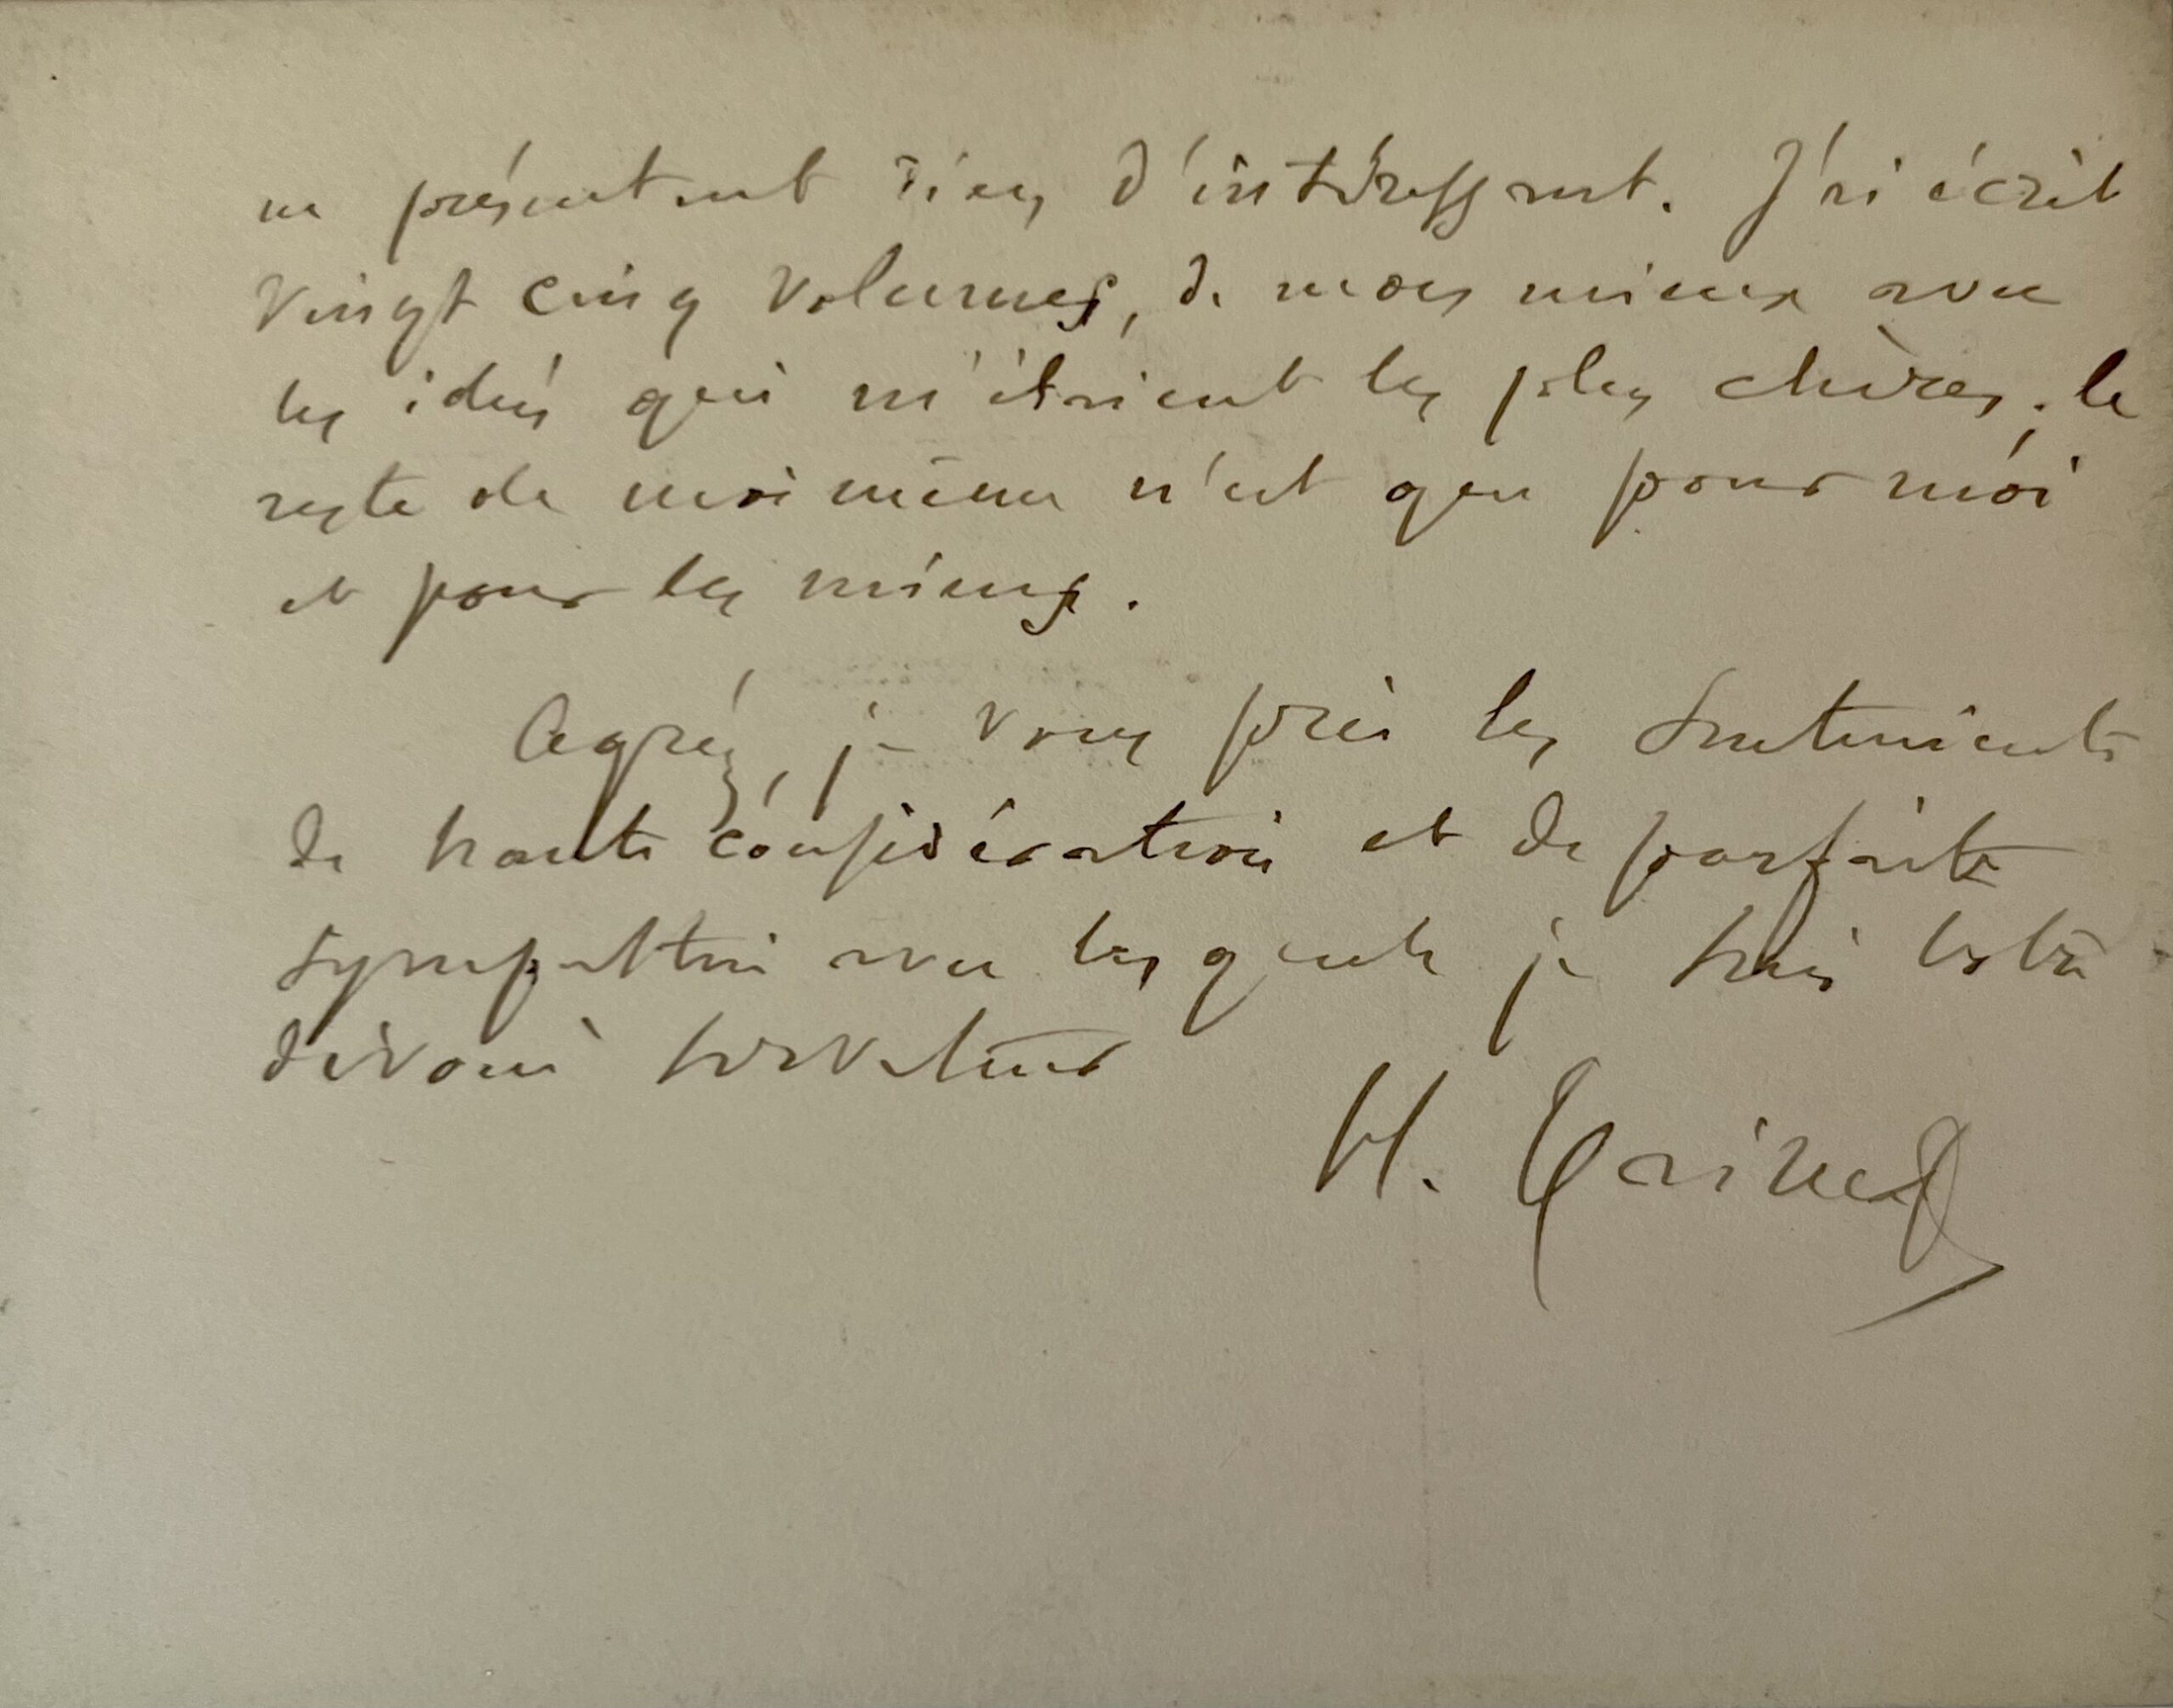 ne présentent rien d'intéressant. J'ai écrit
vingt cinq volumes, de mon mieux avec
les idées qui m'étaient les plus chères ; le
reste de moi même n'est que pour moi
et pour les miens.
Agréez, je vous prie les sentiments
de haute considération et de parfaite
sympathie avec lesquels je suis votre
dévoué serviteur
H. Taine